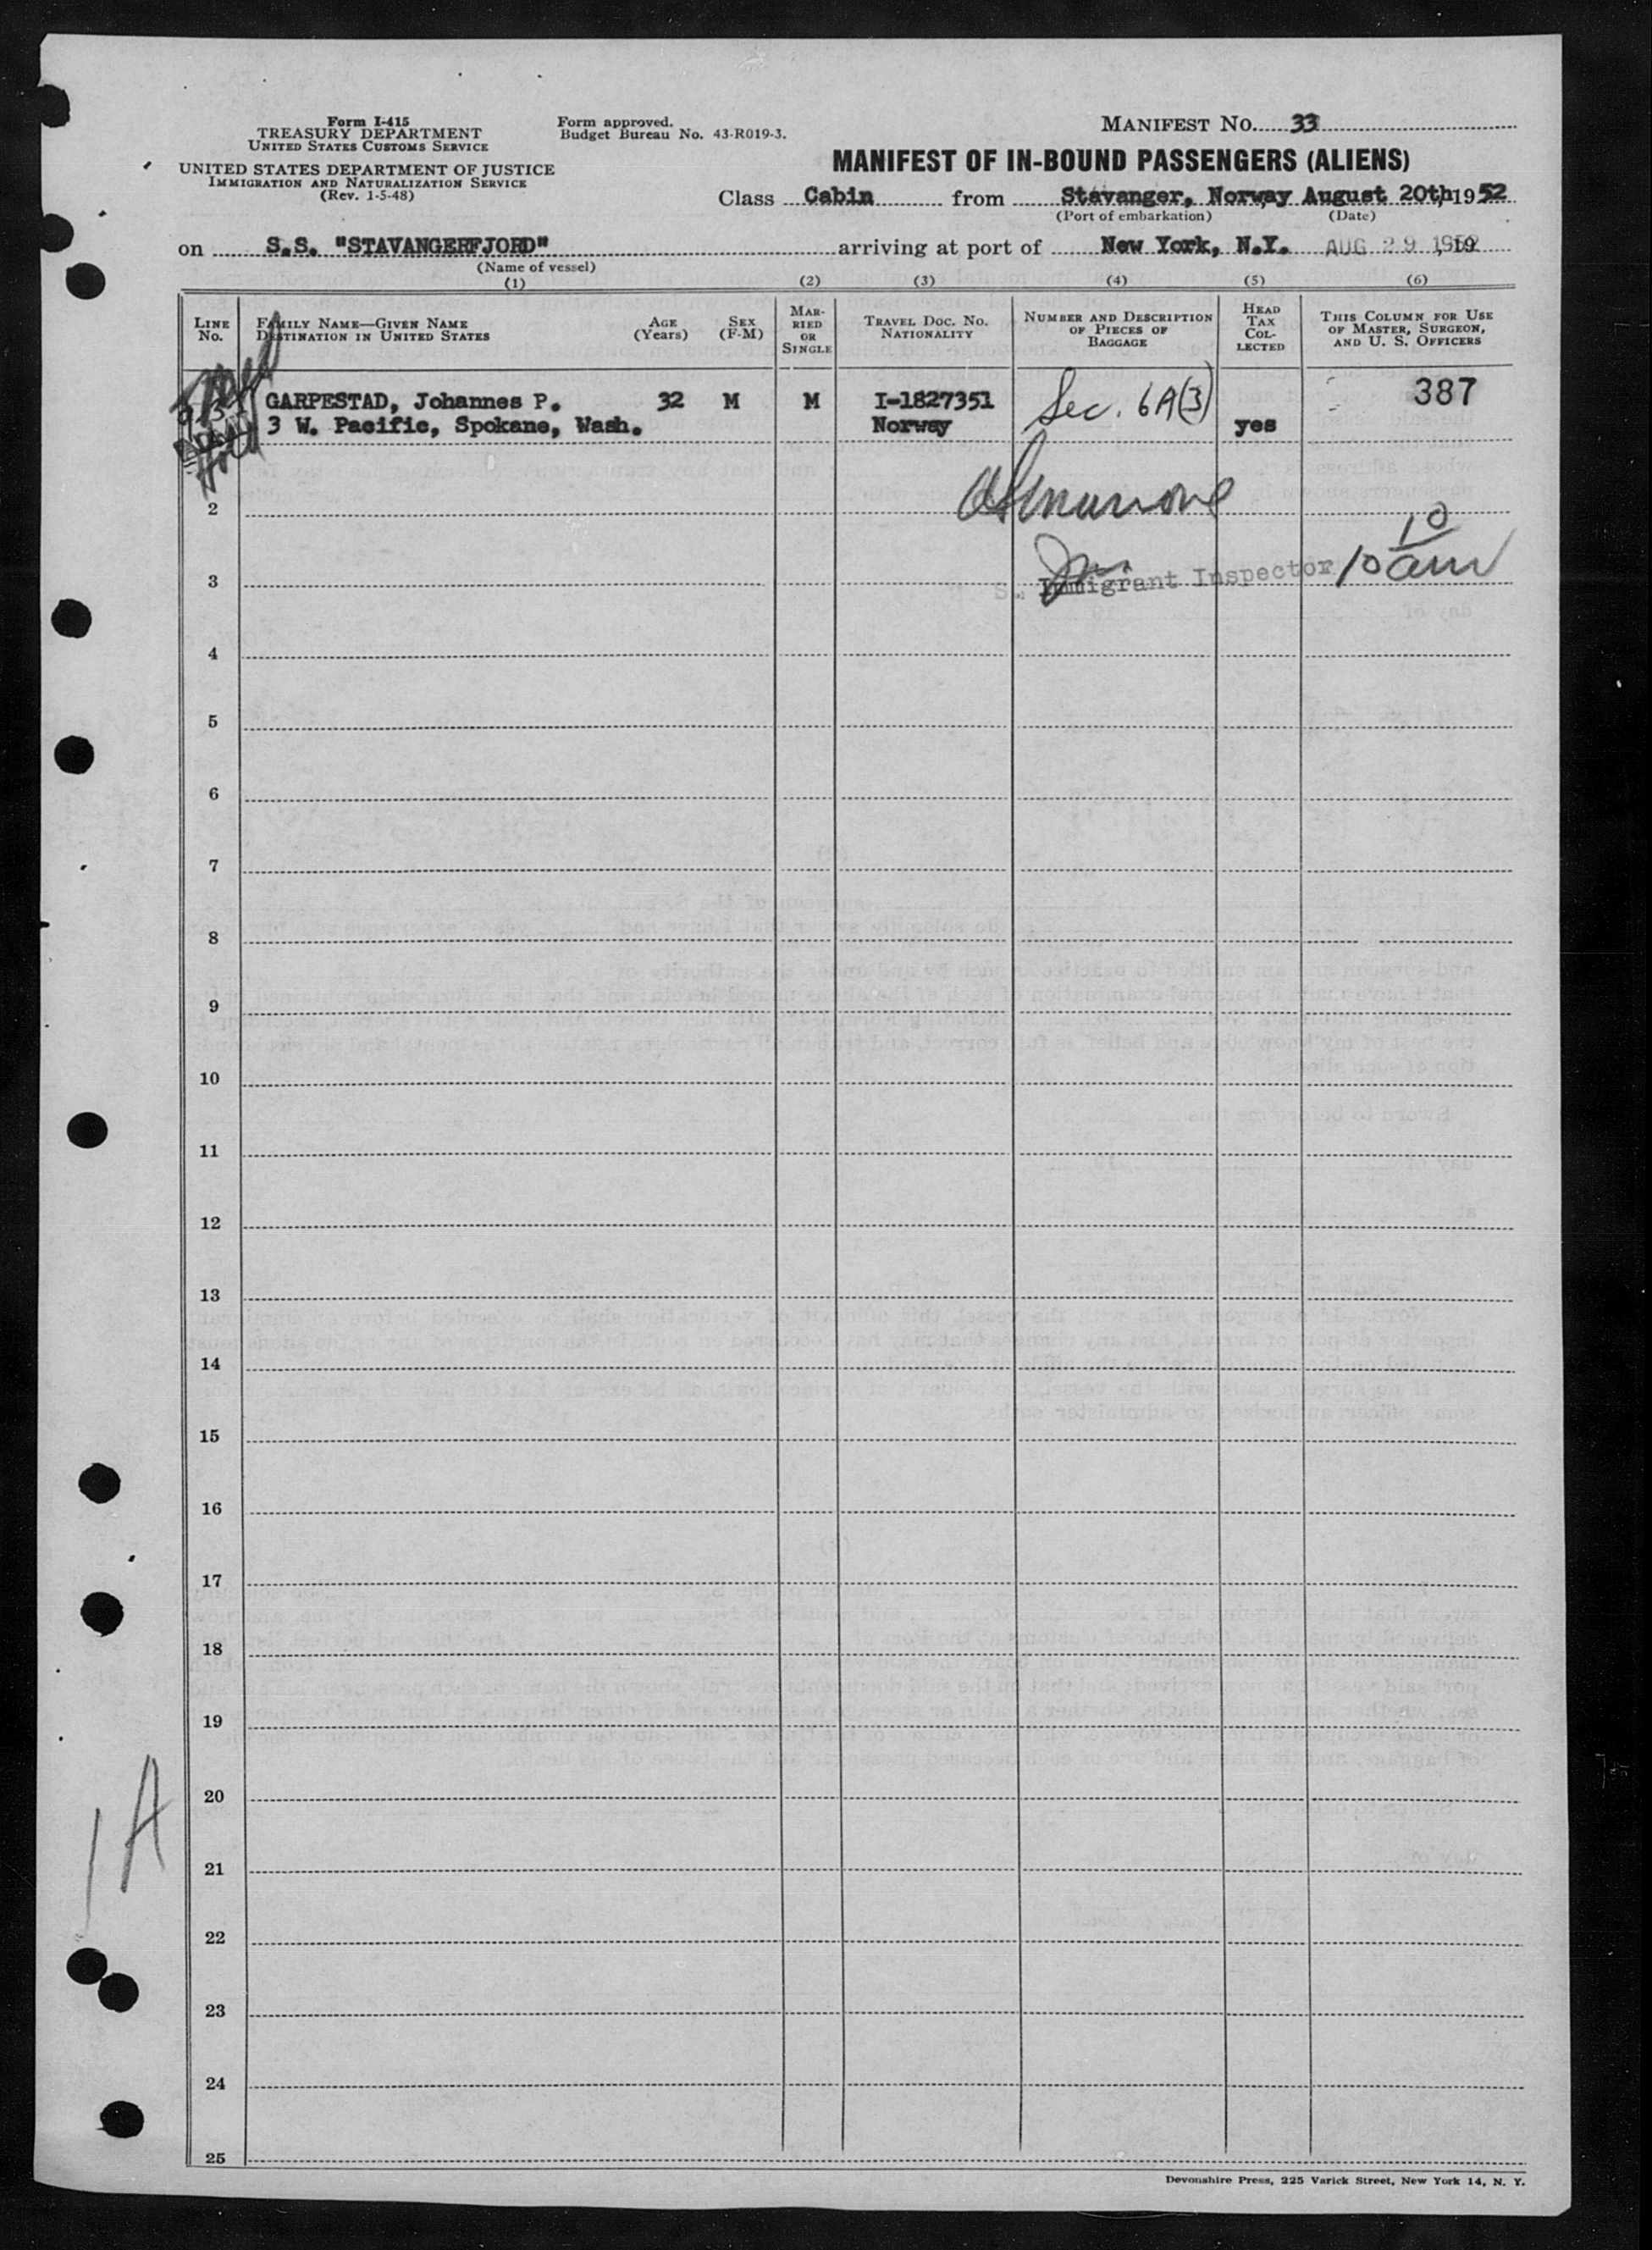 Form I-415
TREASURY DEPARTMENT
UNITED STATES CUSTOMS SERVICE
UNITED STATES DEPARTMENT OF JUSTICE
IMMIGRATION AND NATURALIZATION SERVICE
(Rev. 1-5-48)
Form approved.
Budget Bureau No. 43-R019-3.
MANIFEST No. 33
MANIFEST OF IN-BOUND PASSENGERS (ALIENS)
Class Cabin from Stavanger, Norway August 20th, 1952
(Port of embarkation) (Date)
on S.S. "STAVANGERFJORD" arriving at port of New York, N.Y. AUG 29 1952, 19
(Name of vessel)
(1) (2) (3) (4) (5) (6)
LINE No.
FAMILY NAME—GIVEN NAME
DESTINATION IN UNITED STATES
AGE (Years)
SEX (F-M)
MARRIED OR SINGLE
TRAVEL DOC. NO. NATIONALITY
NUMBER AND DESCRIPTION OF PIECES OF BAGGAGE
HEAD TAX COLLECTED
THIS COLUMN FOR USE OF MASTER, SURGEON, AND U. S. OFFICERS
GARPESTAD, Johannes P. 32 M M I-1827351 Sec. 6A(3) 387
3 W. Pacific, Spokane, Wash. Norway yes
Hold
2
10
3 S. Immigrant Inspector 10 am
4
5
6
7
8
9
10
11
12
13
14
15
16
17
18
19
20
1A
21
22
23
24
25
Devonshire Press, 225 Varick Street, New York 14, N. Y.